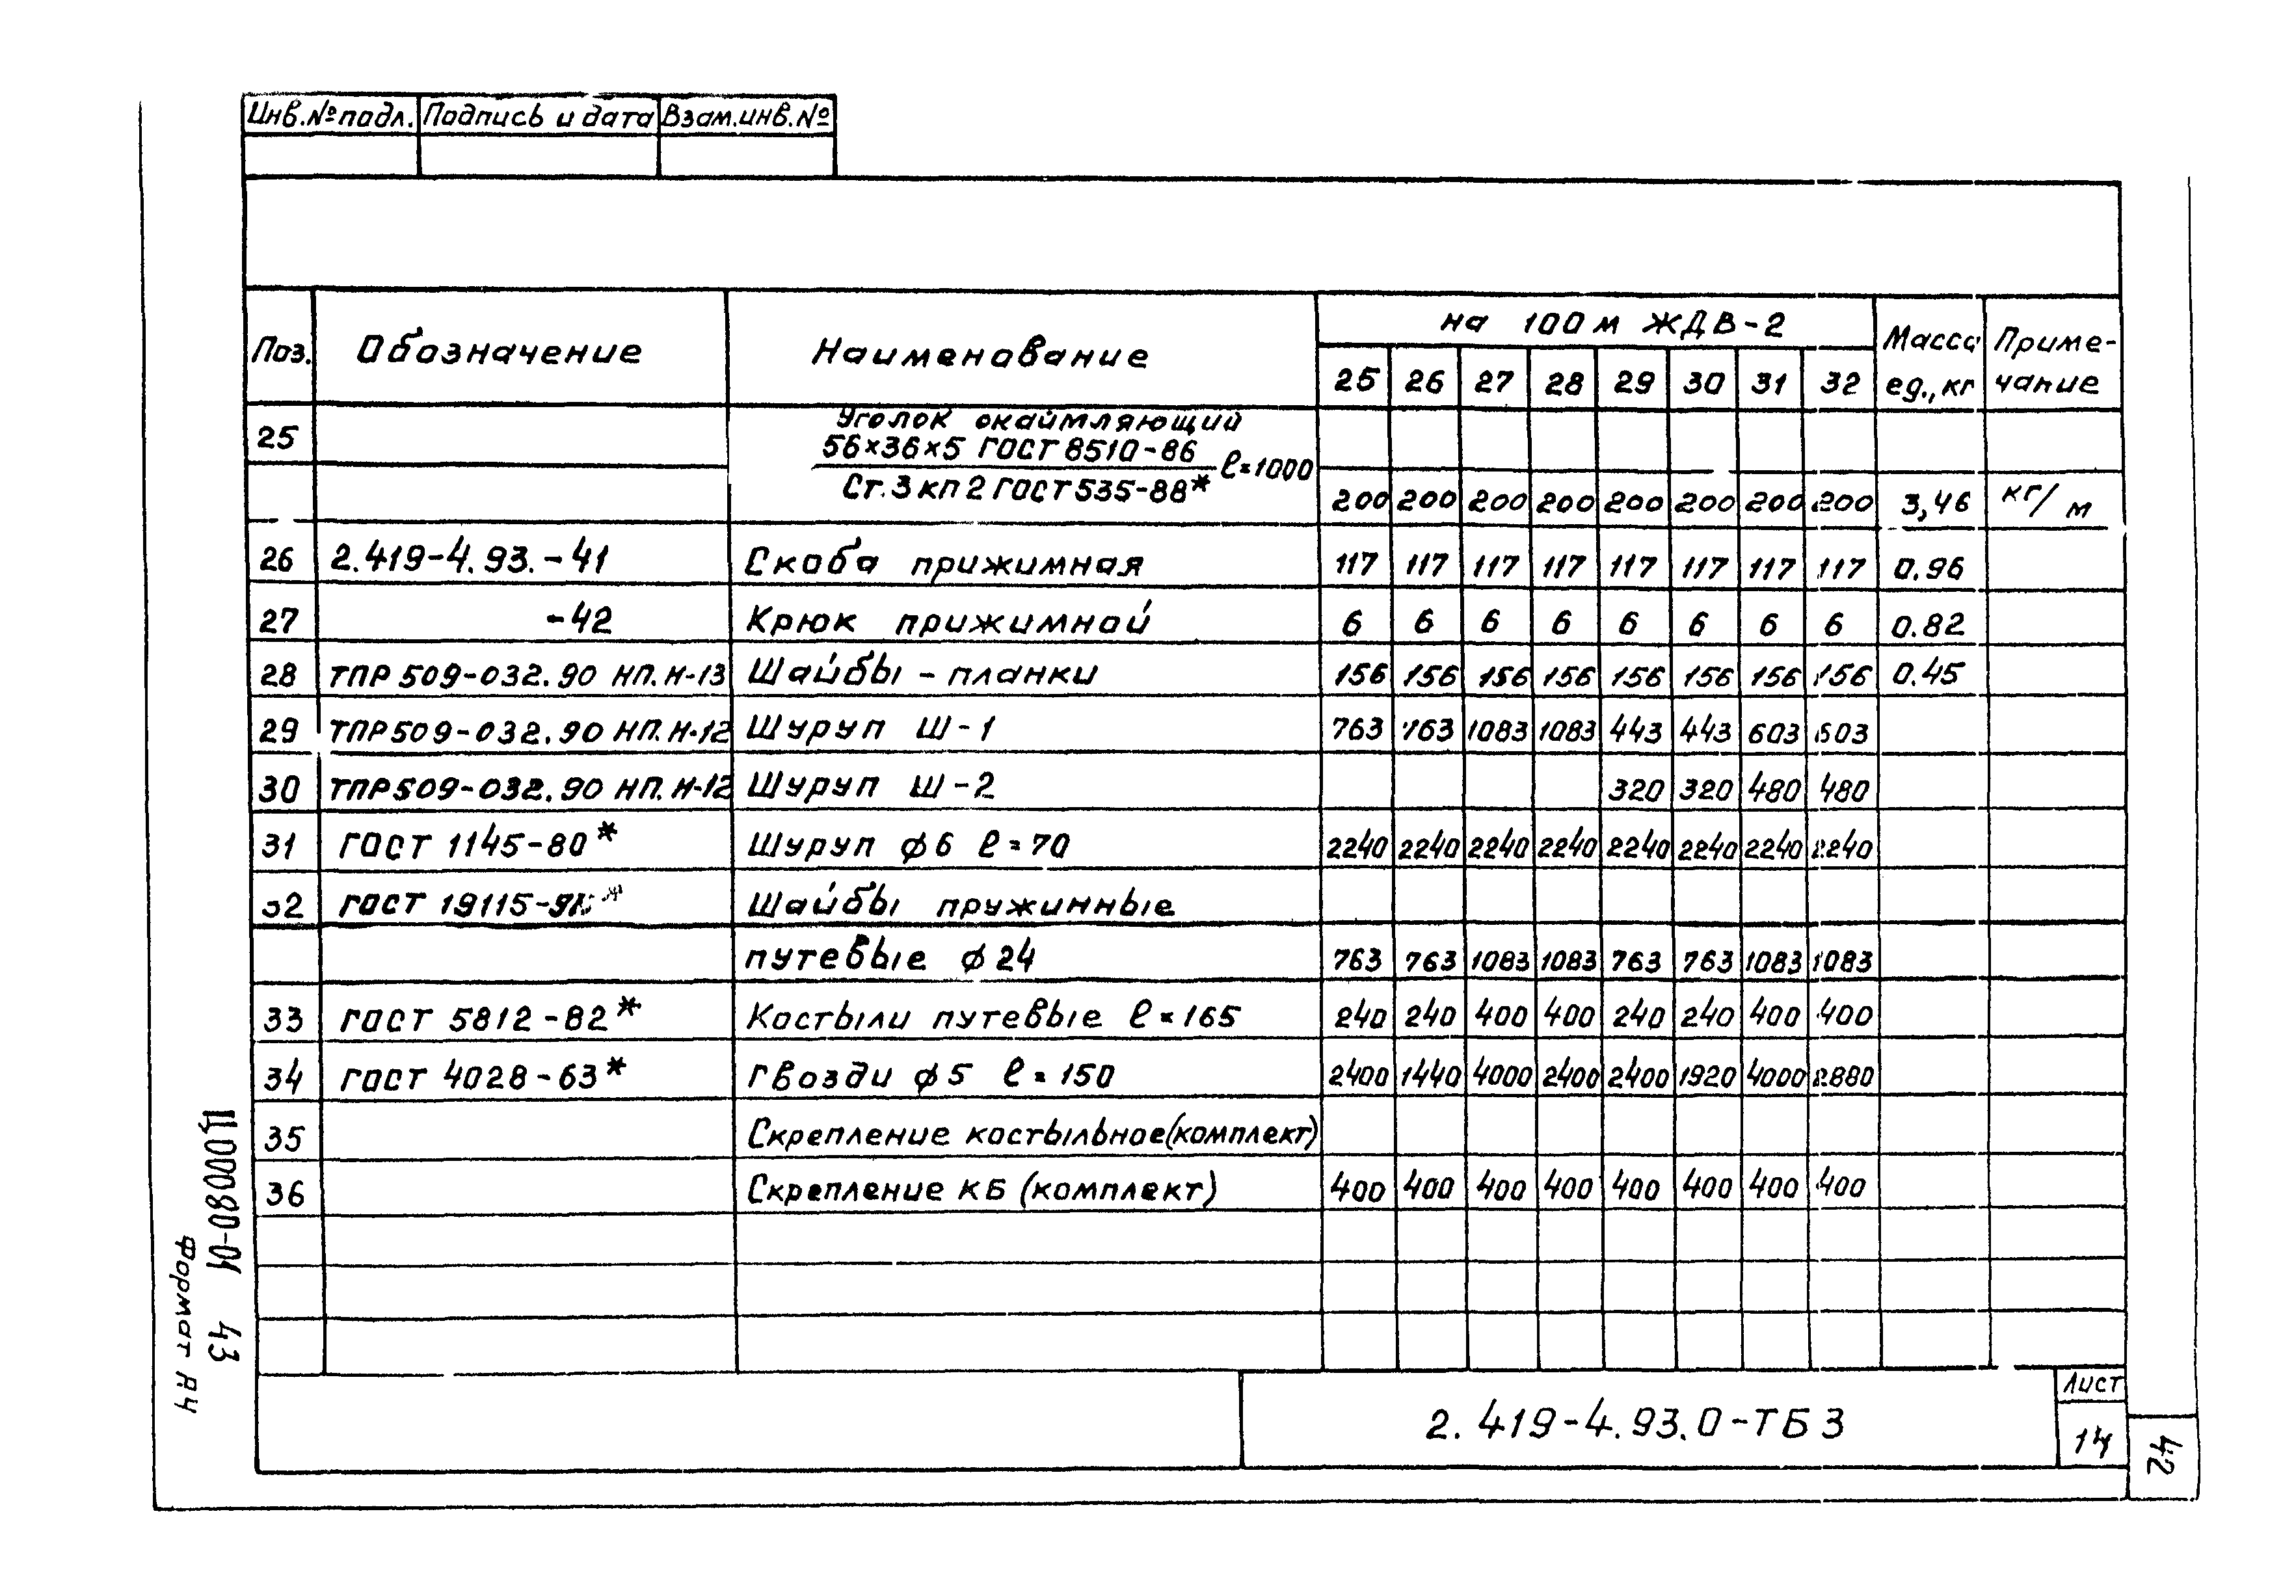 Инв.№ подл. Подпись и дата Взам.инв.№
Поз. Обозначение Наименование на 100 м ЖДВ-2 Масса ед., кг Примечание
25 26 27 28 29 30 31 32
25 Уголок окаймляющий
56×36×5 ГОСТ 8510-86
ℓ=1000
Ст.3 кп 2 ГОСТ 535-88*
200 200 200 200 200 200 200 200 3,46 кг/м
26 2.419-4.93.-41 Скоба прижимная 117 117 117 117 117 117 117 117 0.96
27 -42 Крюк прижимной 6 6 6 6 6 6 6 6 0.82
28 ТПР 509-032.90 НП.Н-13 Шайбы - планки 156 156 156 156 156 156 156 156 0.45
29 ТПР 509-032.90 НП.Н-12 Шуруп Ш-1 763 763 1083 1083 443 443 603 603
30 ТПР 509-032.90 НП.Н-12 Шуруп Ш-2 320 320 480 480
31 ГОСТ 1145-80* Шуруп ф6 ℓ=70 2240 2240 2240 2240 2240 2240 2240 2240
32 ГОСТ Шайбы пружинные
путевые ф24 763 763 1083 1083 763 763 1083 1083
33 ГОСТ 5812-82* Костыли путевые ℓ=165 240 240 400 400 240 240 400 400
34 ГОСТ 4028-63* Гвозди ф5 ℓ=150 2400 1440 4000 2400 2400 1920 4000 2880
35 Скрепление костыльное (комплект)
36 Скрепление КБ (комплект) 400 400 400 400 400 400 400 400
2.419-4.93.0-ТБ3
Лист
14
42
Ц00080-01 43
Формат А4